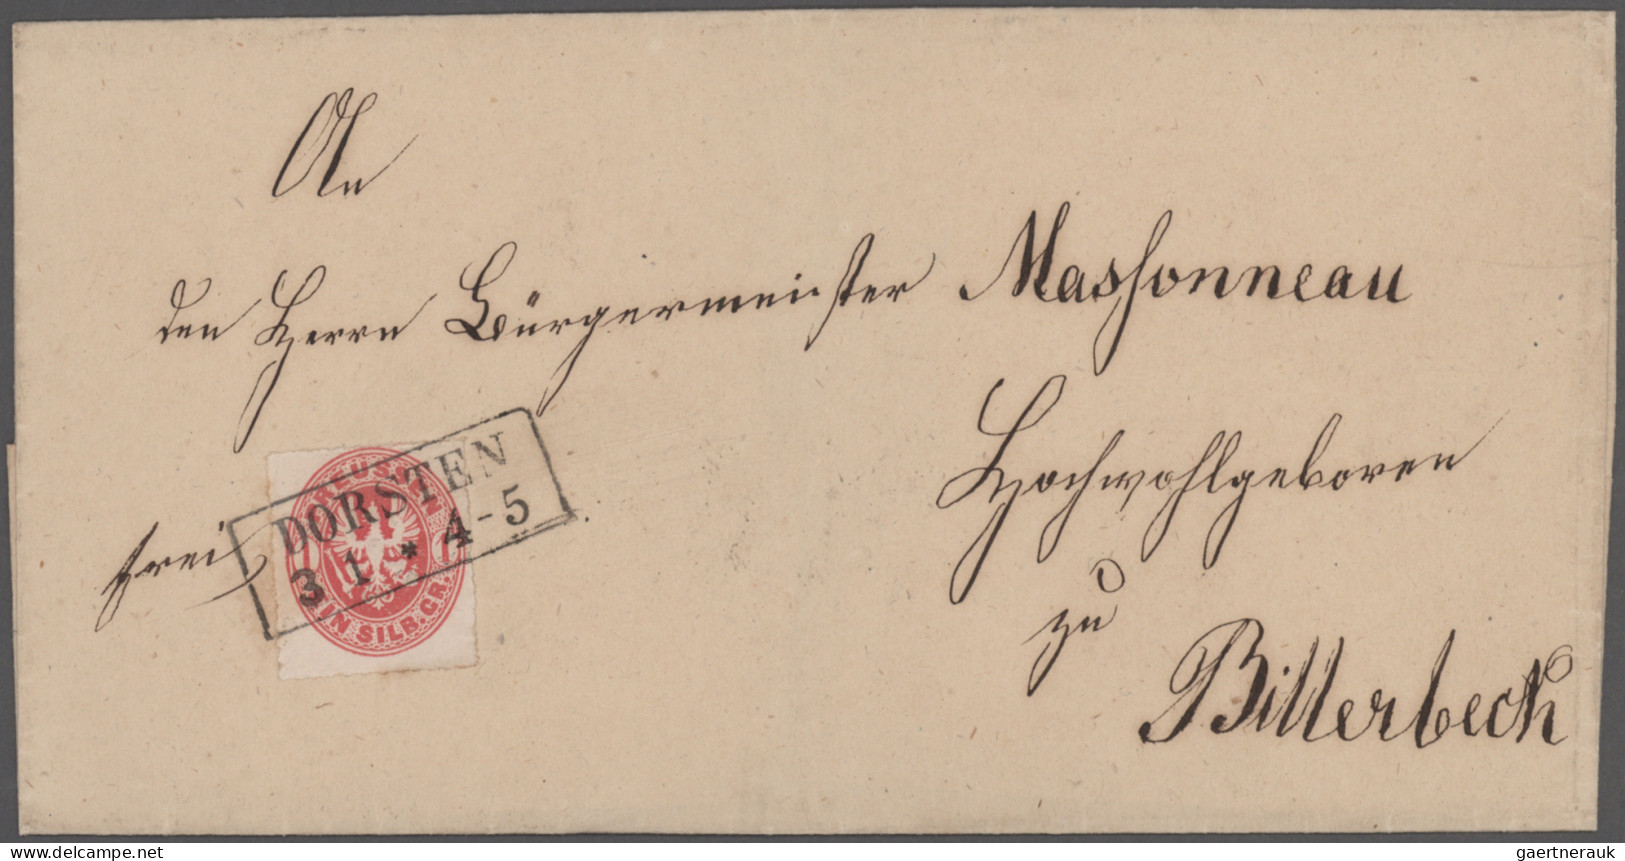 An
den Herrn Bürgermeister Massonneau
Hochwohlgeboren
frei
zu
Billerbeck
DORSTEN
3 1 * 4-5
PREUSSEN
EIN SILB. GR.
www.delcampe.net
gaertnerauk